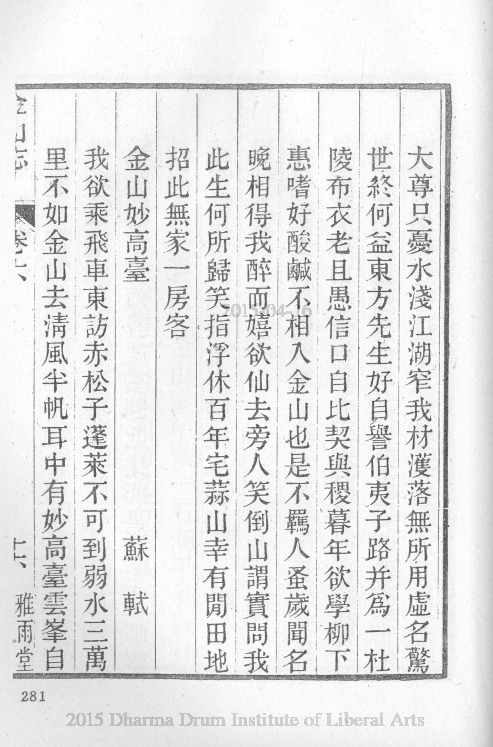 大尊只憂水淺江湖窄我材濩落無所用虛名驚
世終何益東方先生好自譽伯夷子路并爲一杜
陵布衣老且愚信口自比契與稷暮年欲學柳下
惠嗜好酸鹹不相入金山也是不羈人蚤歲聞名
晚相得我醉而嬉欲仙去旁人笑倒山謂實問我
此生何所歸笑指浮休百年宅蒜山幸有閒田地
招此無家一房客
金山妙高臺 蘇軾
我欲乘飛車東訪赤松子蓬萊不可到弱水三萬
里不如金山去淸風半帆耳中有妙高臺雲峯自
金山志 卷六 雅雨堂
281
2015 Dharma Drum Institute of Liberal Arts